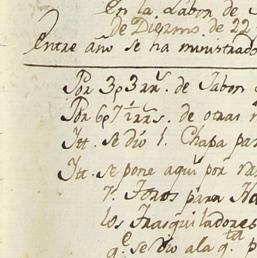 En la Labor de
de Diezmo. de 22
Entre año se ha ministrado
Por 3p3 rrs. de Jabon
Por 6p7 rrs. de otras
Itt. se dió 1. Chapa par
Itt. se pone aqui por ra
7. Forros para
los Trasquiladores
qe. se dio a la